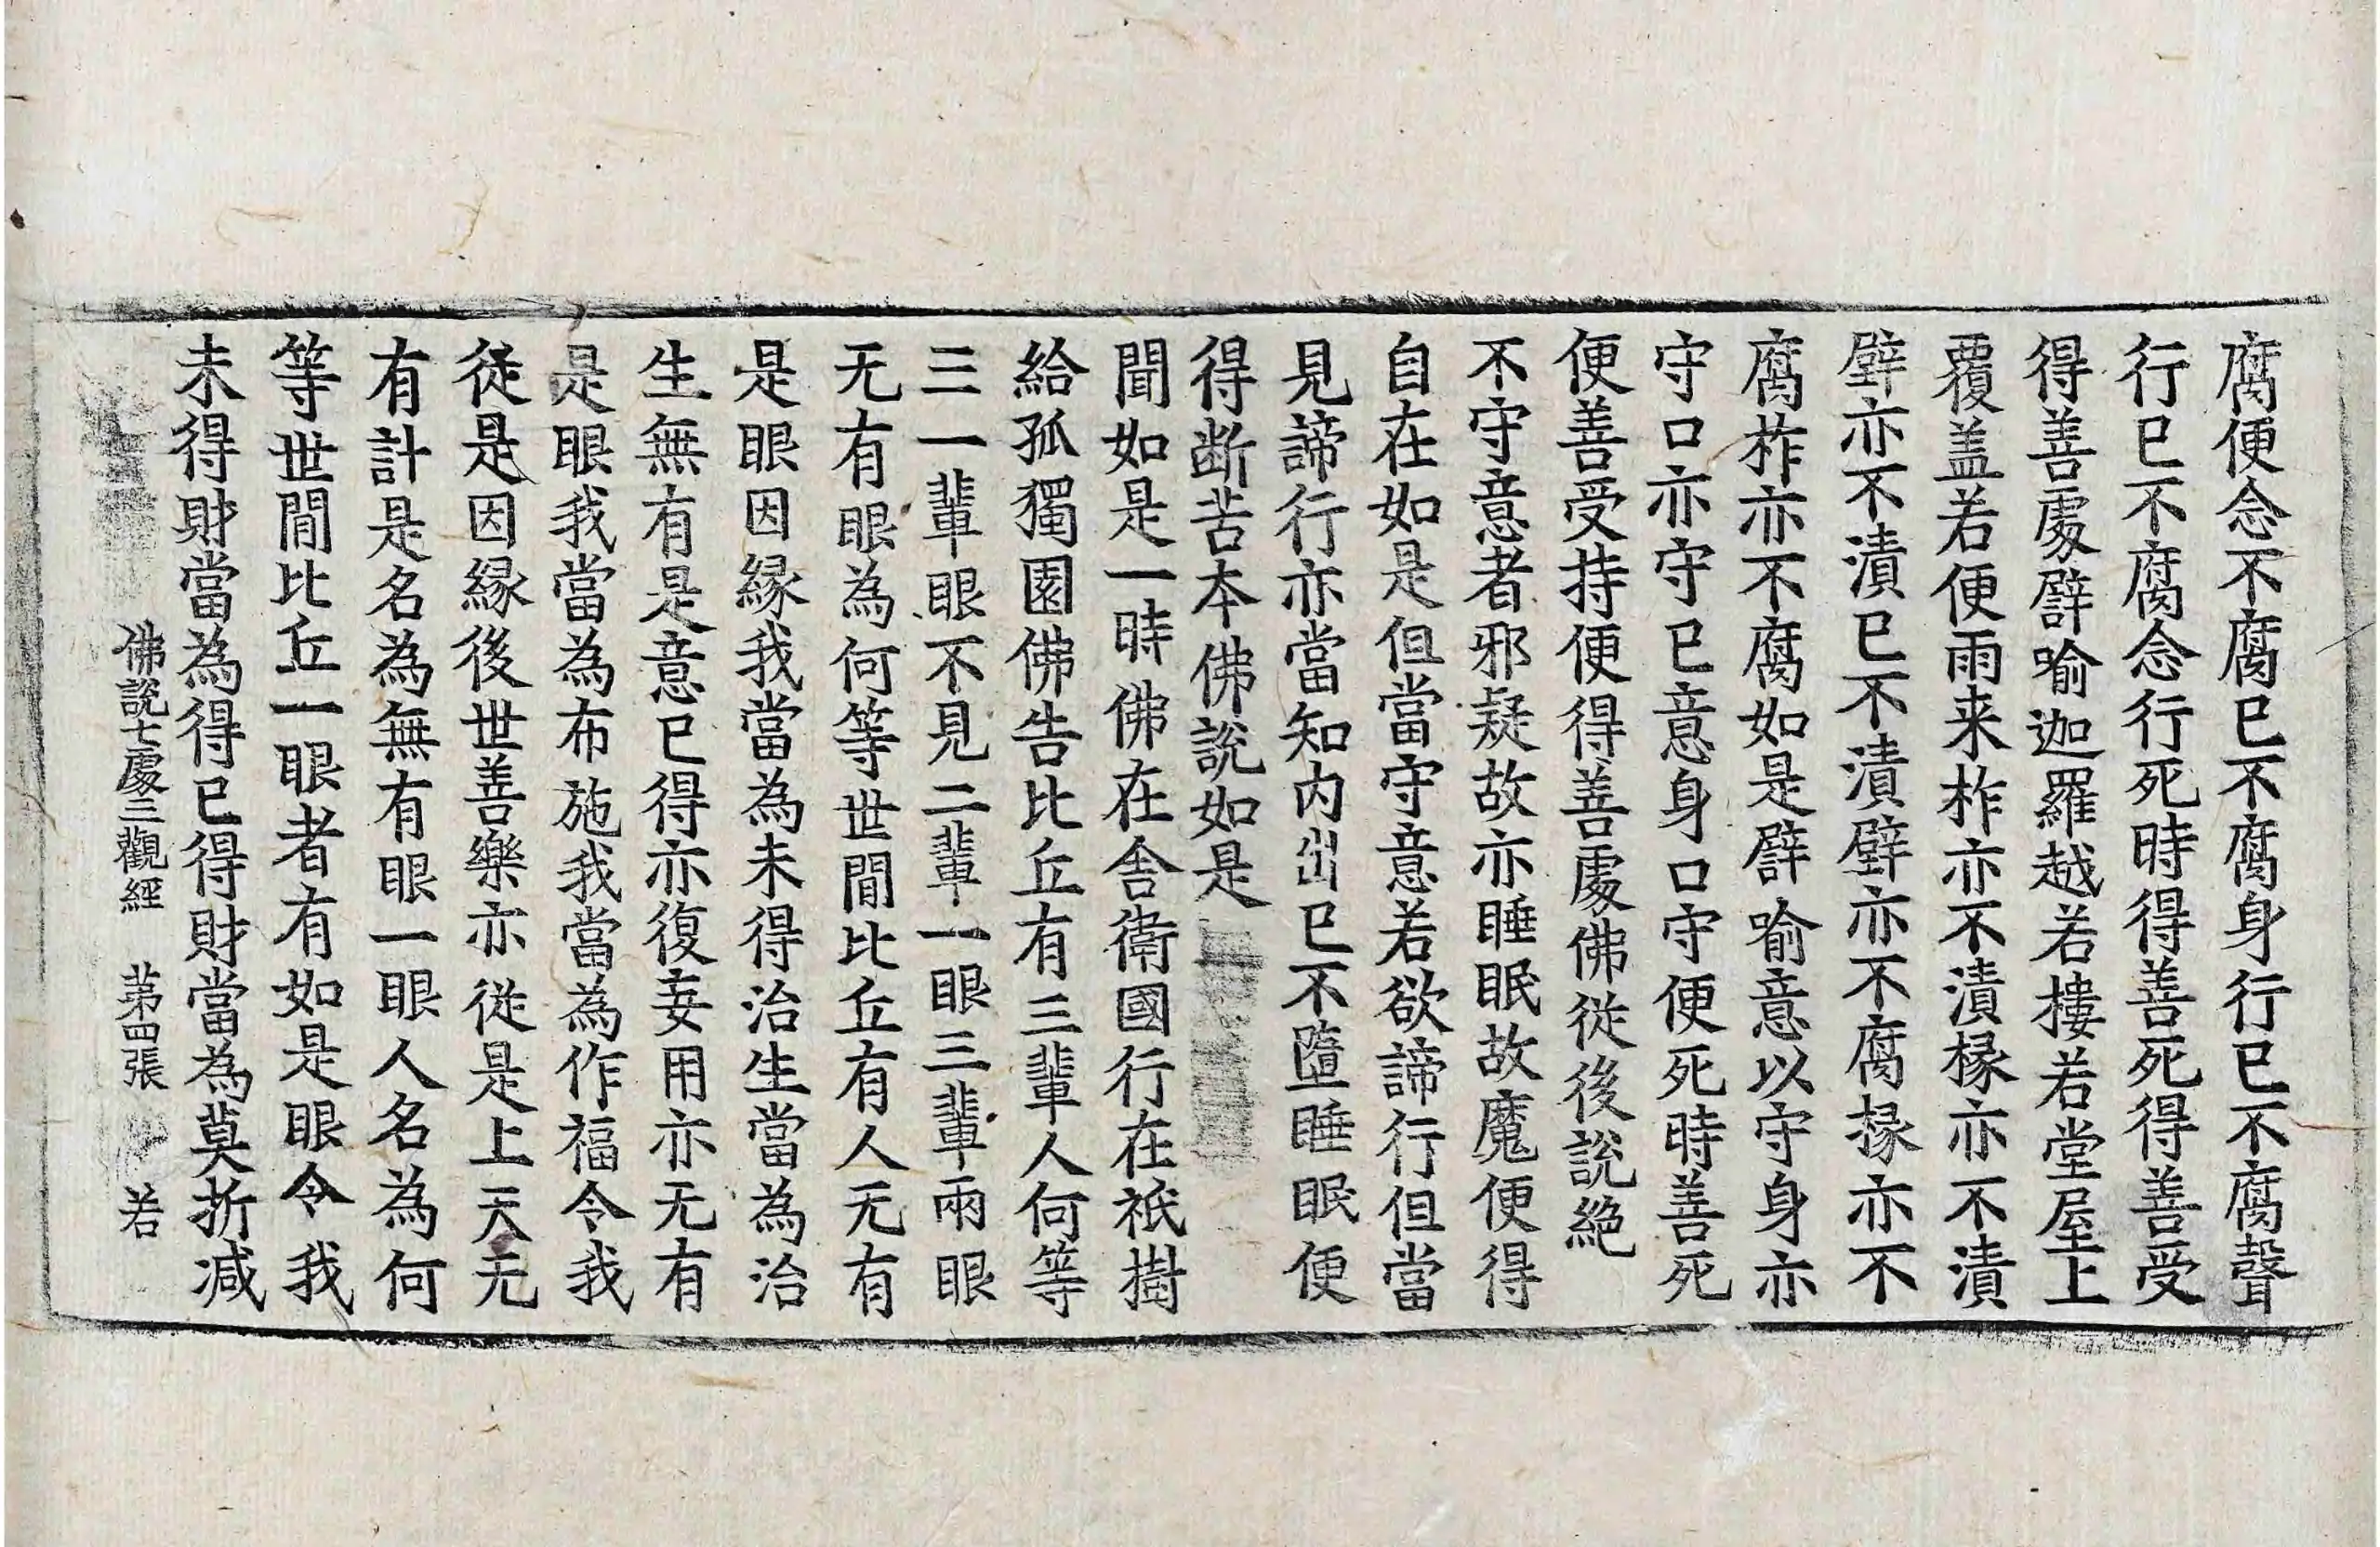 腐便念不腐已不腐身行已不腐聲
行已不腐念行死時得善死得善受
得善處譬喻迦羅越若樓若堂屋上
覆盖若便雨来柞亦不漬椽亦不漬
壁亦不漬已不漬壁亦不腐椽亦不
腐柞亦不腐如是譬喻意以守身亦
守口亦守已意身口守便死時善死
便善受持便得善處佛從後說絕
不守意者邪疑故亦睡眠故魔便得
自在如是但當守意若欲諦行但當
見諦行亦當知內出已不墮睡眠便
得断苦本佛說如是
聞如是一時佛在舍衛國行在祇樹
給孤獨園佛告比丘有三輩人何等
三一輩眼不見二輩一眼三輩兩眼
无有眼為何等世間比丘有人无有
是眼因緣我當為未得治生當為治
生無有是意已得亦復妄用亦无有
是眼我當為布施我當為作福令我
從是因緣後世善樂亦從是上天无
有計是名為無有眼一眼人名為何
等世間比丘一眼者有如是眼令我
未得財當為得已得財當為莫折減
佛說七處三觀經 苐四張 若